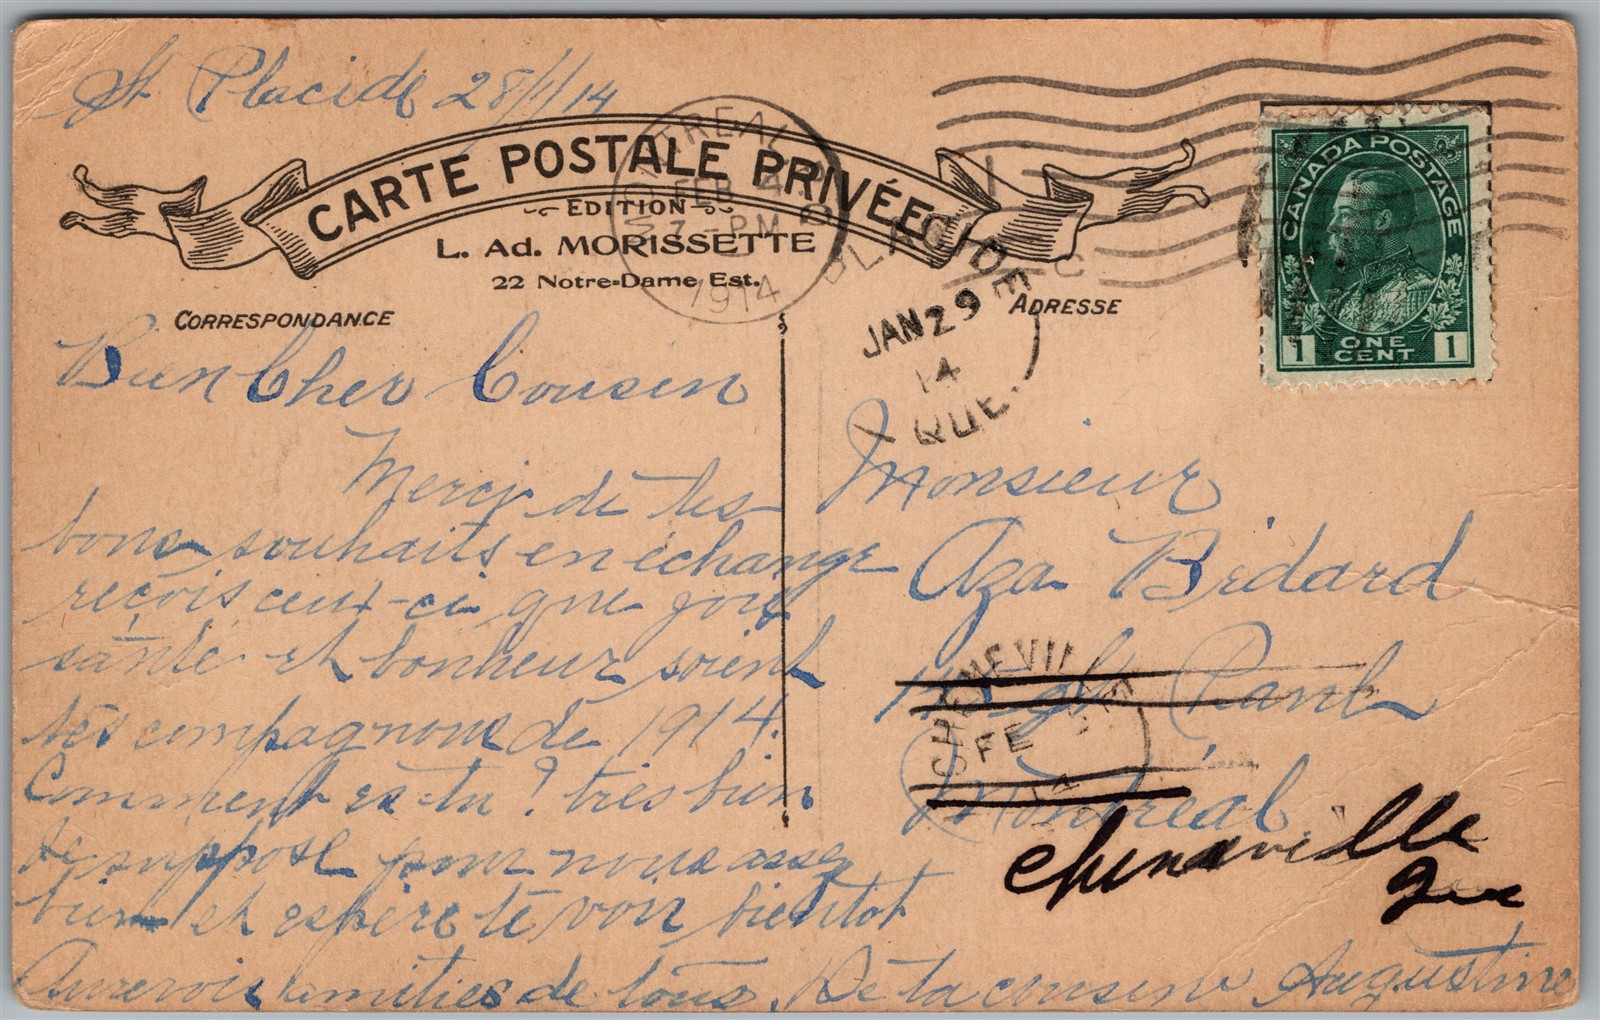 St Placide 28/1/14
CARTE POSTALE PRIVÉE
EDITION
L. Ad. MORISSETTE
22 Notre-Dame Est.
CORRESPONDANCE
Bien Cher Cousin
Merci de tes
bons souhaits en échange
reçois ceux-ci que joie
santé et bonheur soient
tes compagnons de 1914.
Comment es-tu? très bien
je suppose pour nous assez
bien et espère te voir bientot
Aurevoir amitiés de tous. De ta cousine Augustine
MONTREAL
FEB 4
7 - PM
1914
PLACIDE
JAN 29
14
QUE.
ADRESSE
CANADA POSTAGE
1 ONE CENT 1
Monsieur
Aza Bédard
Paul
Montréal
CHENEVILLE
FE
14
Cheneville
Que